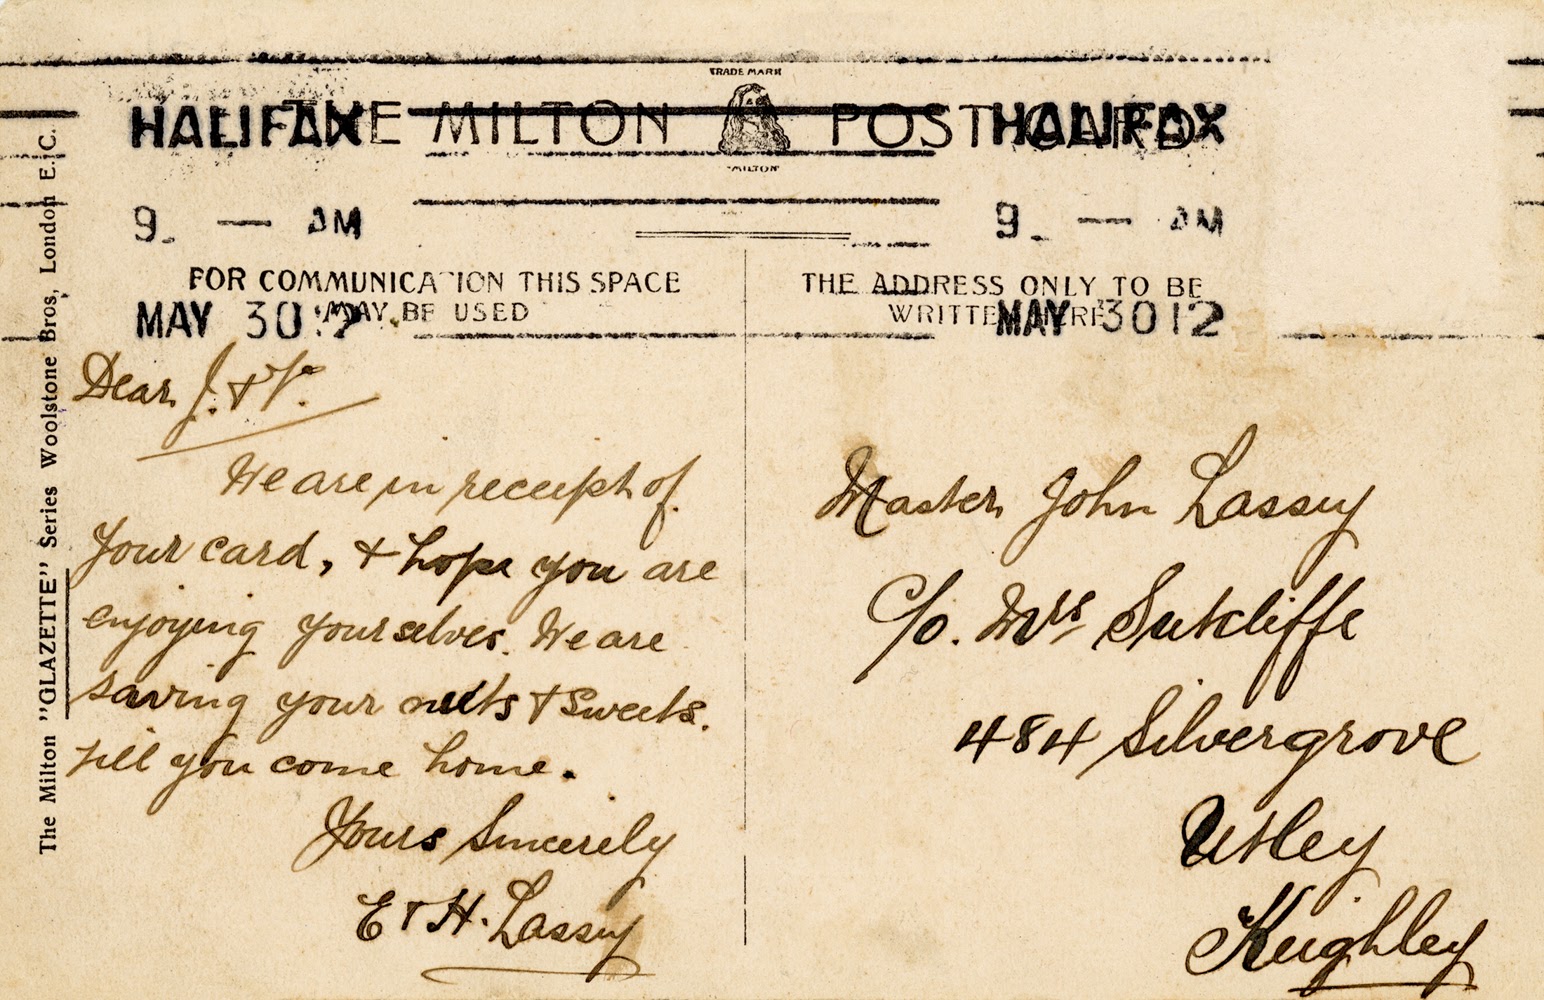 TRADE MARK
THE MILTON POST CARD
"MILTON"
HALIFAX
9. — AM
MAY 30 12
HALIFAX
9 — AM
MAY 30 12
FOR COMMUNICATION THIS SPACE
MAY BE USED
THE ADDRESS ONLY TO BE
WRITTEN HERE
The Milton "GLAZETTE" Series Woolstone Bros, London E.C.
Dear J. &
We are in receipt of
your card, & hope you are
enjoying yourselves. We are
saving your nuts & sweets.
till you come home.
Yours Sincerily
E & H. Lassey
Master John Lassey
C/o. Mrs Sutcliffe
484 Silvergrove
Utley
Keighley